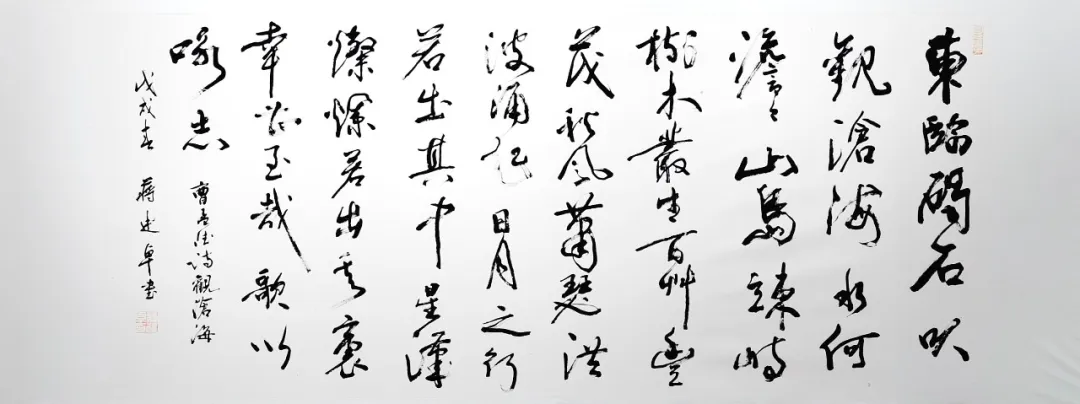 東臨碣石以
觀滄海水何
澹〻山島竦峙
樹木叢生百艸豐
茂秋風蕭瑟洪
波涌起日月之行
若出其中星漢
燦爛若出其裏
幸甚至哉歌以
咏志
曹孟德詩觀滄海
戊戌春 蔣述卓書